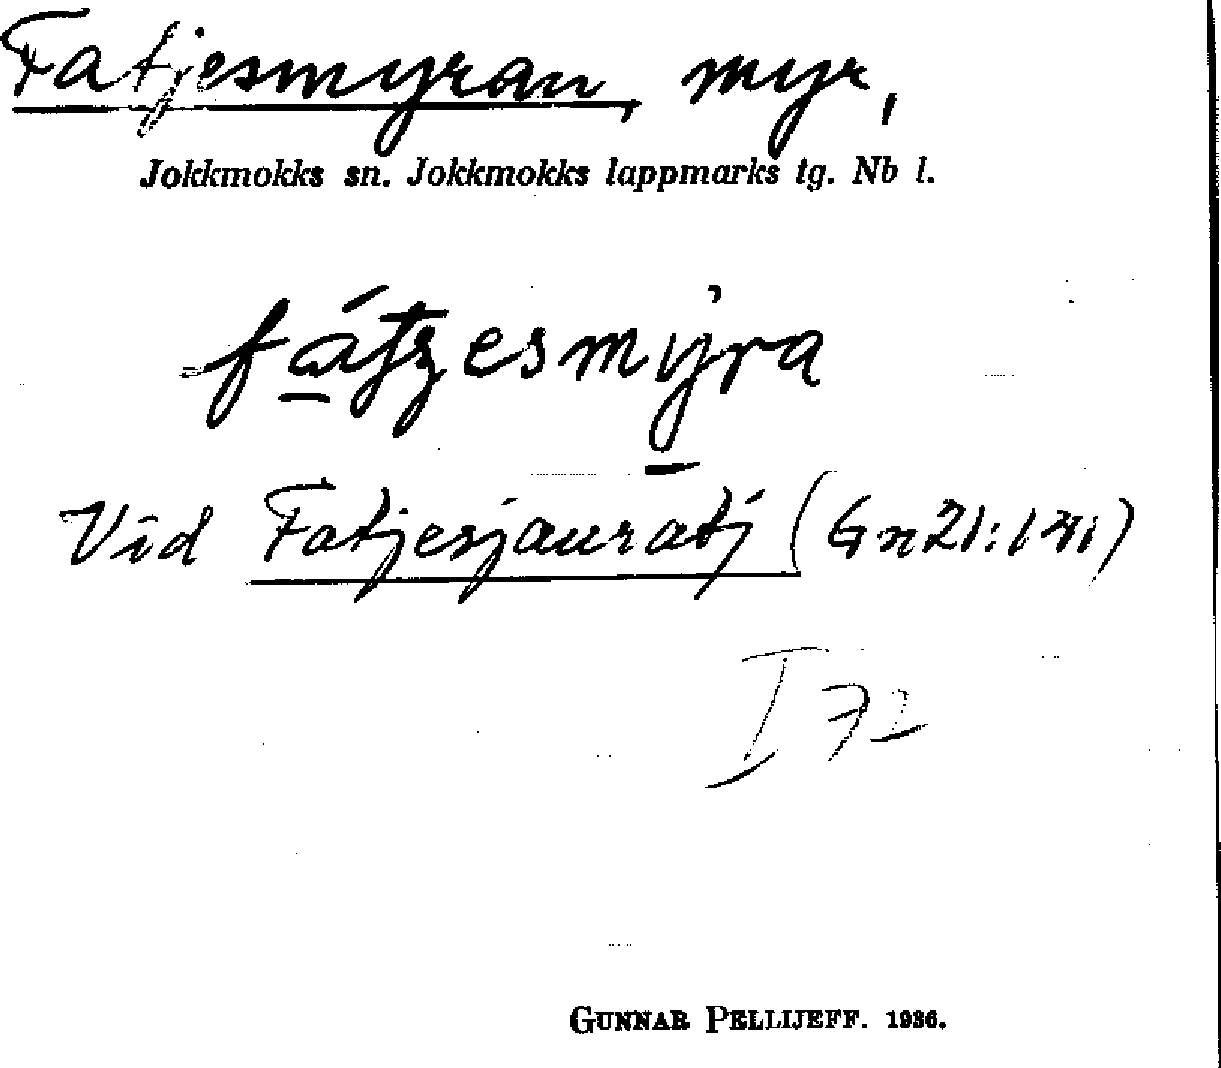 Fatjesmyran, myr,
Jokkmokks sn. Jokkmokks lappmarks tg. Nb l.
Vid Fatjesjauratj (Gn21:
I 72
GUNNAR PELLIJEFF. 1936.